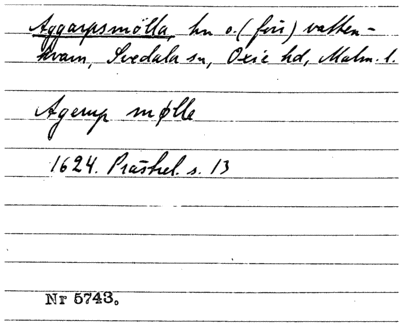 Aggarpsmölla, hn o. (förr) vatten-
kvarn, Svedala sn, Oxie hd, Malm. l.
Agerup mølle
1624. Prästrel. s. 13
Nr 5743.